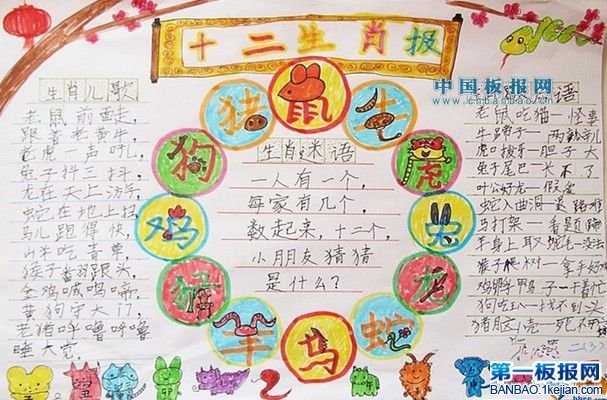 十二生肖报
中国板报网
生肖儿歌
老鼠前面走,
跟着老黄牛
老虎一声吼,
兔子抖三抖,
龙在天上游
蛇在地上
马儿跑得快,
山羊吃青草,
猴子翻跟头,
金鸡喊
黄狗守大门
老猪呼噜
睡大觉,
鼠
牛
虎
兔
龙
蛇
马
羊
猴
鸡
狗
猪
生肖迷语
一人有一个,
每家有几个,
数起来,十二个,
小朋友猜猜
是什么?
语
老鼠吃猫—怪事
牛鼻子—两
虎口拔牙—胆子大
兔子尾巴—长不了
叶公好龙—假爱
蛇入曲洞—
马打架—看题
羊身上取
猴子爬树—拿手好
狗吃—找不到头
猪
二(3)
第一板报网
BANBAO.1kejian.com